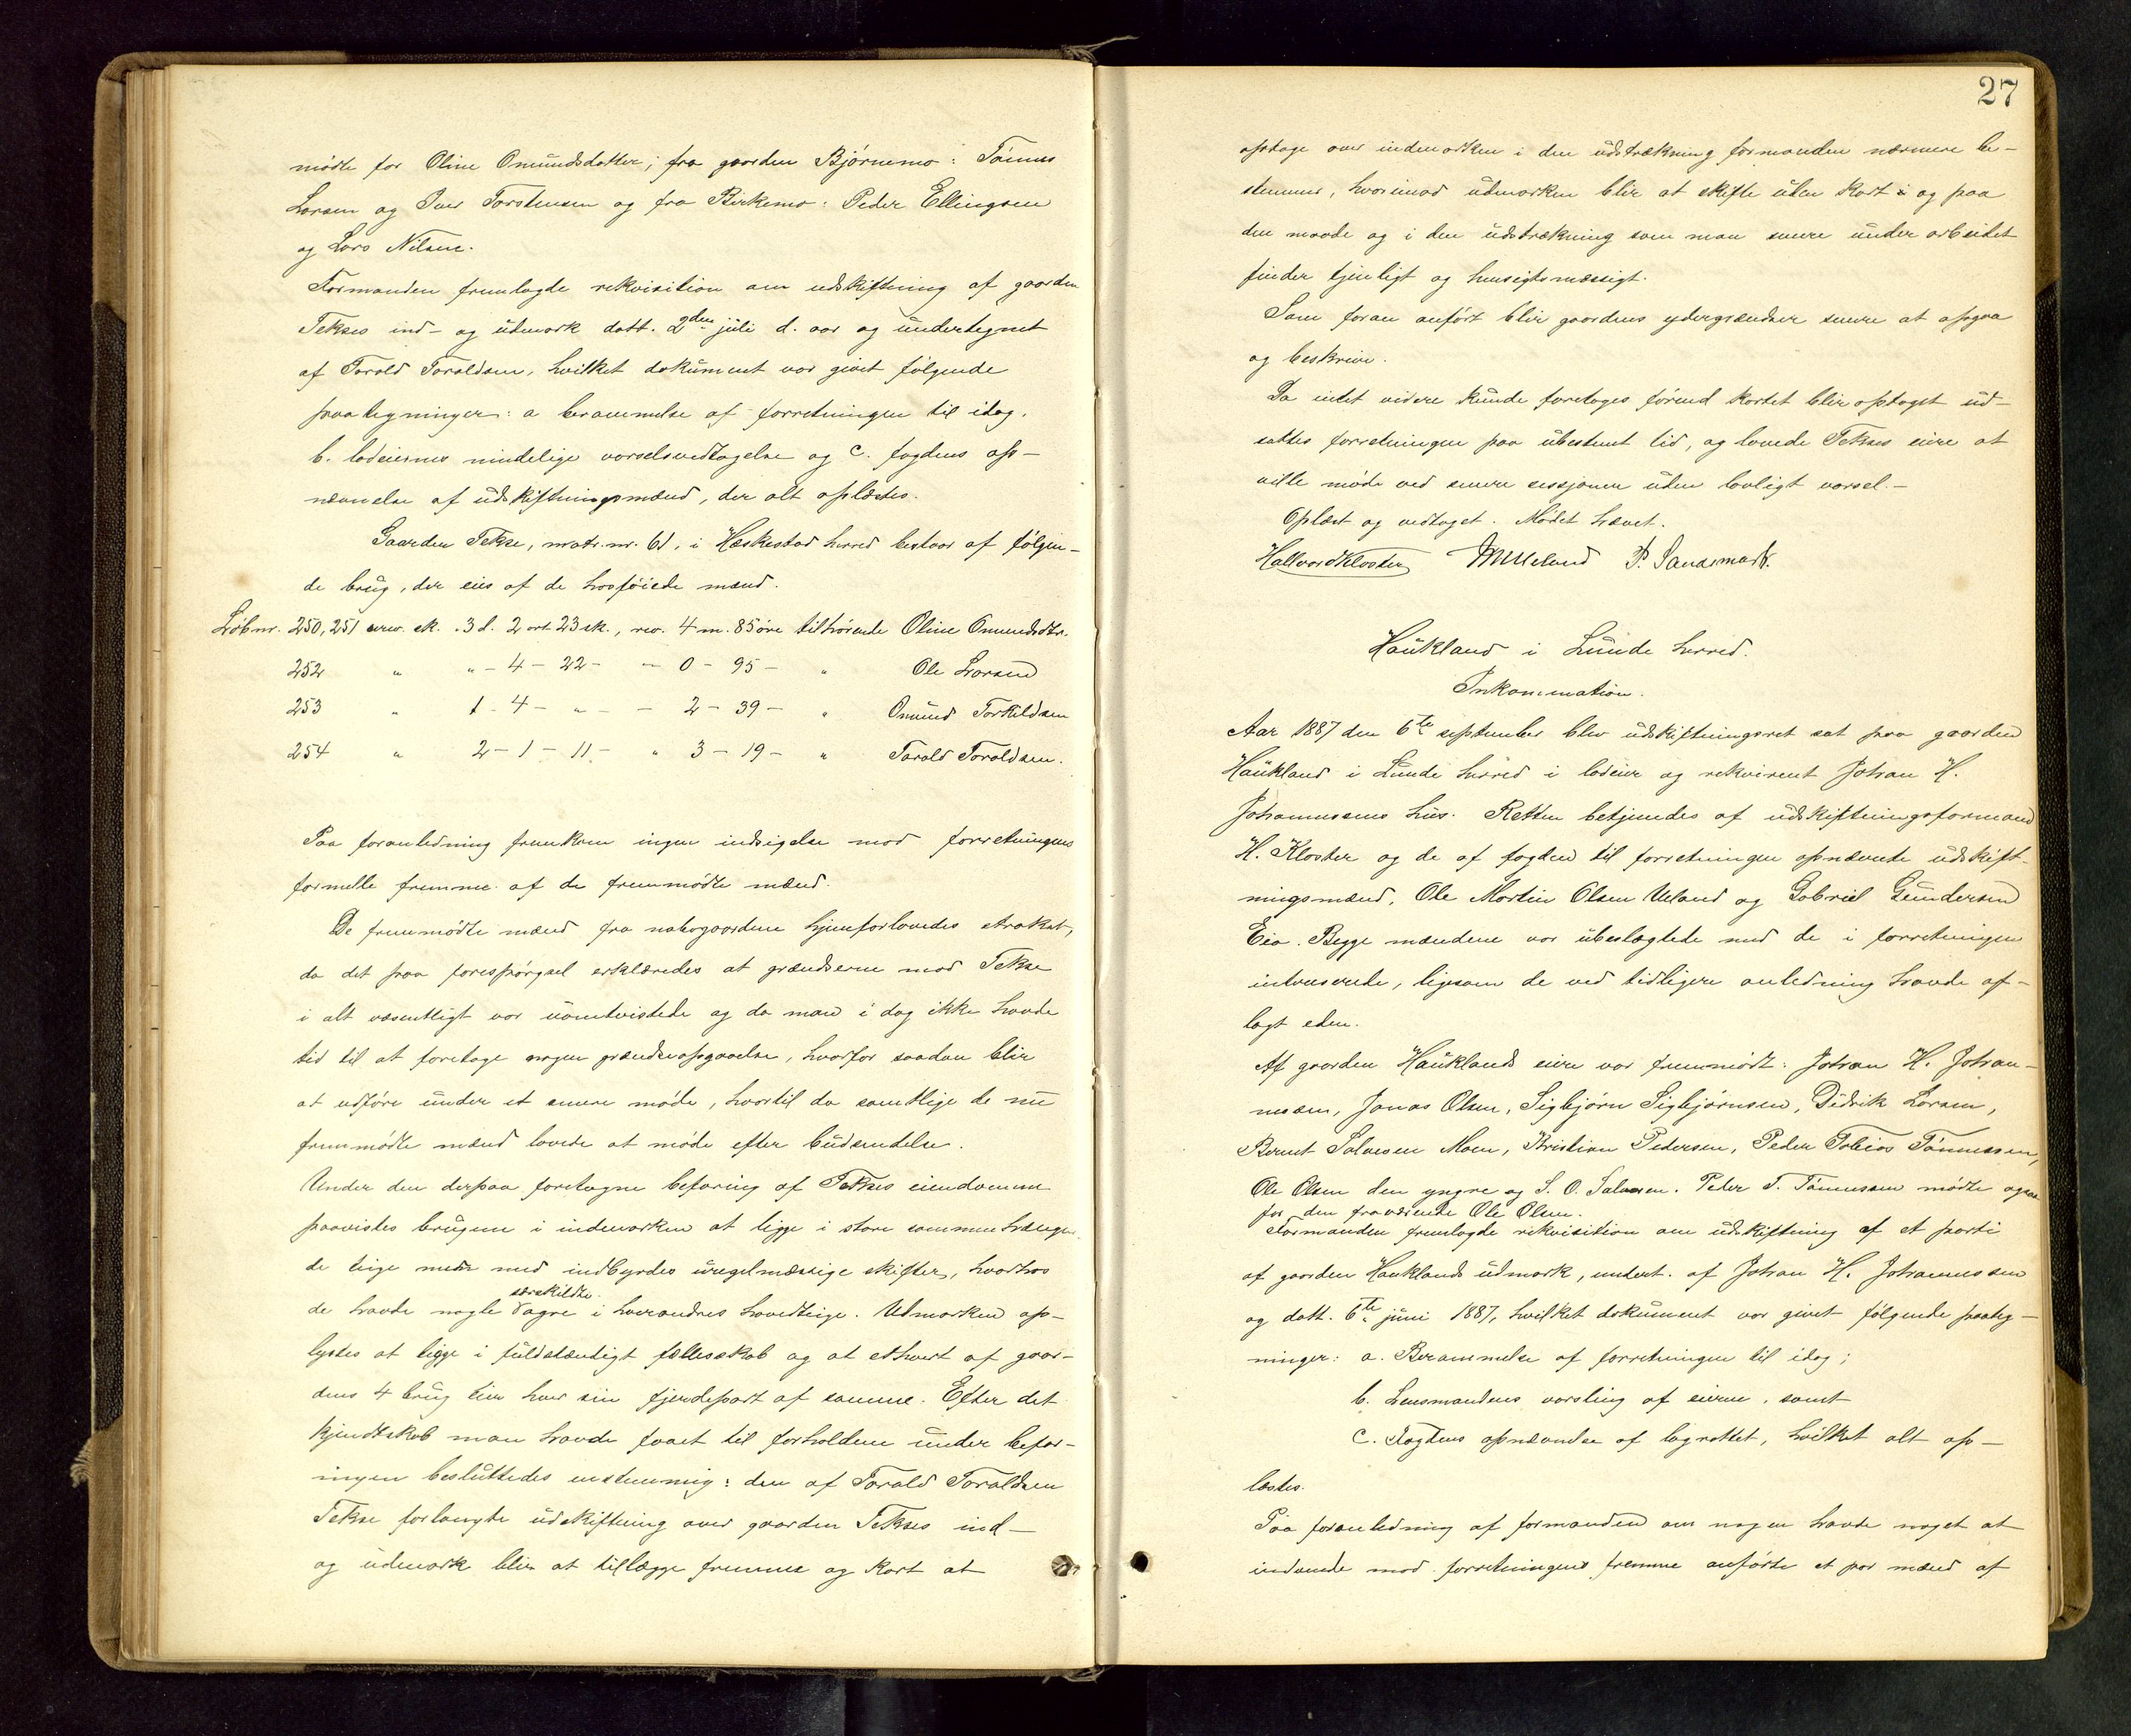 mödte for Oline Omundsdatter; fra gaarden Björnemo: Tönnes
Larsen og Iver Torstensen og fra Birkemo: Peder Ellingsen
og Lars Nilsen.
Formanden fremlagde rekvisition om udskiftning af gaarden
Tekses ind- og udmark datt. 2den juli d. aar og undertegnet
af Torald Toraldsen, hvilket dokument var givet fölgende
paategninger: a berammelse af forretningen til idag.
b. lodeiernes mindelige varselsvedtagelse og c. fogdens op-
nævnelse af udskiftningsmænd, der alt oplæstes.
Gaarden Tekse, matr. nr. 61, i Heskestad herred bestaar af fölgen-
de brug, der eies af de hosföiede mænd.
Löbnr. 250, 251 urev. sk. 3 d. 2 ort 23 sk., rev. 4 m. 85 öre tilhörende Oline Omundsdtr.
252 " " - 4 - 22 - " 0 - 95 - " Ole Larsen
253 " 1 - 4 - " - - 2 - 39 - " Omund Torkildsen
254 " 2 - 1 - 11 - " 3 - 19 - " Torald Toraldsen.
Paa foranledning fremkom ingen indsigelse mod forretningens
formelle fremme af de fremmödte mænd.
De fremmödte mænd fra nabogaardene hjemforlovedes straks,
da det paa forespörgsel erklæredes at grændserne mod Tekse
i alt væsentligt var uomtvistede og da man i dag ikke havde
tid til at foretage nogen grændseopgaaelse, hvorfor saadan blir
at udföre under et senere möde, hvortil da samtlige de nu
fremmödte mænd lovede at möde efter budsendelse.
Under den derpaa foretagne befaring af Tekses eiendomme
paavistes brugene i indmarken at ligge i store sammenhængen-
de teige med indbyrdes uregelmæssige skifter, hvorhos
særskildte
de havde nogle agre i hverandres hovedteige. Udmarken op-
lystes at ligge i fuldstændigt fællesskab og at ethvert af gaar-
dens 4 brug eier hver sin fjerdepart af samme. Efter det
kjendtskab man havde faaet til forholdene under befar-
ingen besluttedes enstemmig: den af Torald Toraldsen
Tekse forlangte udskiftning over gaarden Tekses ind-
og udmark blir at tillægge fremme og kart at
27
optage over indmarken i den udstrækning formanden nærmere be-
stemmer, hvorimod udmarken blir at skifte uden kart og paa
den maade og i den udstrækning som man senere under arbeidet
finder tjenligt og hensigtsmæssigt.
Som foran anfört blir gaardens ydergrændser senere at opgaa
og beskrive.
Da intet videre kunde foretages förend kartet blir optaget ud-
sattes forretningen paa ubestemt tid, og lovede Tekses eiere at
ville möde ved senere sessjoner uden lovligt varsel.-
Oplæst og vedtaget. Mödet hævet.
Hallvard Kloster P. Sandsmark.
Haukland i Lunde herred.
Inkamination.
Aar 1887 den 6te september blev udskiftningsret sat paa gaarden
Haukland i Lunde herred i lodeier og rekvirent Johan H.
Johannessens hus. Retten betjendes af udskiftningsformand
H. Kloster og de af fogden til forretningen opnævnte udskift-
ningsmænd, Ole Martin Olsen Ueland og Gabriel Gundersen
Eia. Begge mændene var ubeslægtede med de i forretningen
interesserede, ligesom de ved tidligere anledning havde af-
lagt eden.
Af gaarden Hauklands eiere var fremmödt: Johan H. Johan-
nesen, Jonas Olsen, Sigbjörn Sigbjörnsen, Didrik Larsen,
Bernt Salvesen Moen, Kristian Pedersen, Peder Tobias Tönnessen,
Ole Olsen den yngre og S. O. Salvesen. Peder T. Tönnessen mödte ogsaa
for den fraværende Ole Olsen.
Formanden fremlagde rekvisition om udskiftning af et parti
af gaarden Hauklands udmark, undert. af Johan H. Johannessen
og datt. 6te juni 1887, hvilket dokument var givet fölgende paateg-
ninger: a. Berammelse af forretningen til idag;
b. Lensmandens varsling af eierne, samt
c. Fogdens opnævnelse af lagrettet, hvilket alt op-
læstes.
Paa foranledning af formanden om nogen havde noget at
indvende mod forretningens fremme anförte et par mænd af